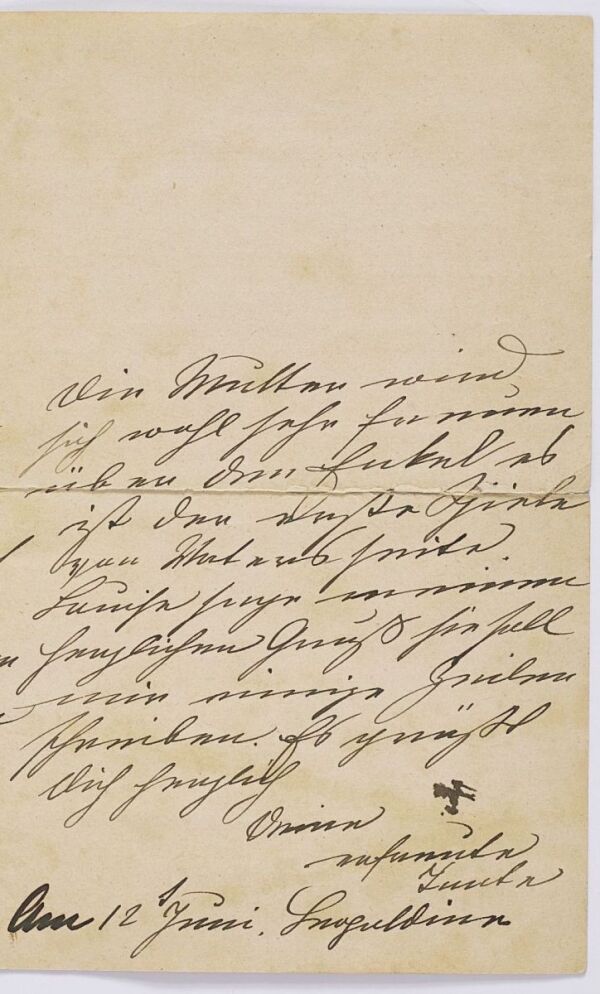 die Mutter wird
sich wohl sehr freuen
über den Enkel es
ist der erste Thiele
von Vaters seite.
Louise sage meinen
herzlichen Gruß sie soll
mir einige Zeilen
schreiben. Es grüßt
Dich herzlich
Deine
erfreute
Tante
Am 12 Juni. Leopoldine